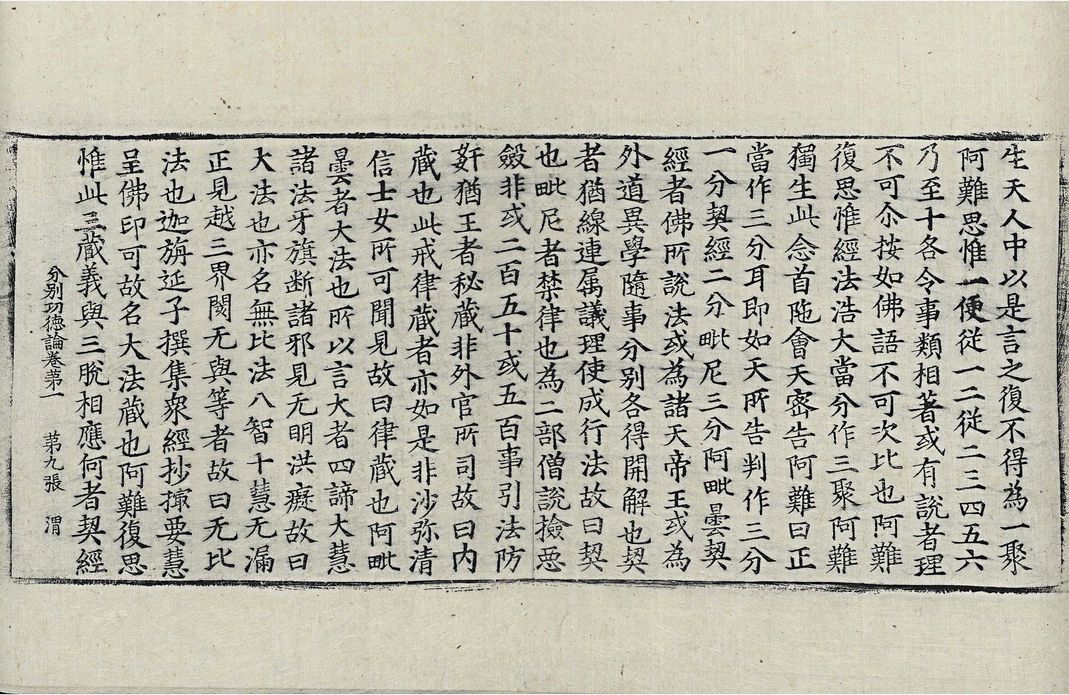 生天人中以是言之復不得為一聚
阿難思惟一便從一二從二三四五六
乃至十各令事類相著或有說者理
不可尒按如佛語不可次比也阿難
復思惟經法浩大當分作三聚阿難
獨生此念首陁會天密告阿難曰正
當作三分耳即如天所告判作三分
一分契經二分毗尼三分阿毗曇契
經者佛所說法或為諸天帝王或為
外道異學隨事分別各得開解也契
者猶線連属議理使成行法故曰契
也毗尼者禁律也為二部僧說撿惡
斂非或二百五十或五百事引法防
姧猶王者秘藏非外官所司故曰內
藏也此戒律藏者亦如是非沙弥清
信士女所可聞見故曰律藏也阿毗
曇者大法也所以言大者四諦大慧
諸法牙旗断諸邪見无明洪癡故曰
大法也亦名無比法八智十慧无漏
正見越三界閡无與等者故曰无比
法也迦旃延子撰集衆經抄撮要慧
呈佛印可故名大法藏也阿難復思
惟此三藏義與三脫相應何者契經
分別功德論卷第一 苐九張 渭